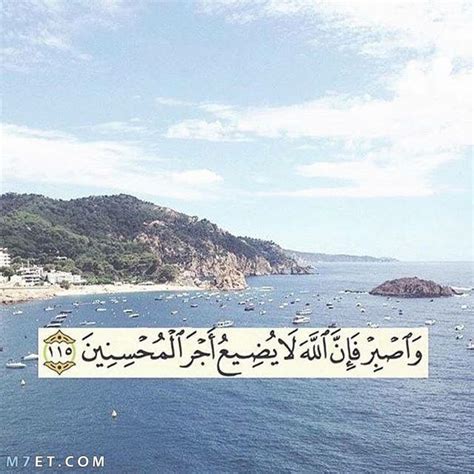 وَٱصۡبِرۡ فَإِنَّ ٱللَّهَ لَا يُضِيعُ أَجۡرَ ٱلۡمُحۡسِنِينَ ١١٥
M7ET.COM